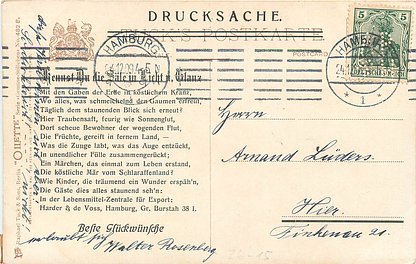 DRUCKSACHE.
POSTKARTE
HAMBURG
24.12.09.4-5 N
5 5
DEUTSCHES REICH
HAMBURG
24.12
* 1 *
Kennst Du die Säle in Licht u. Glanz
Mit den Gaben der Erde in köstlichem Kranz,
Wo alles, was schmeichelnd den Gaumen erfreut,
Täglich dem staunenden Blick sich erneut?
Hier Traubensaft, feurig wie Sonnenglut,
Dort scheue Bewohner der wogenden Flut,
Die Früchte, gereift in fernem Land, —
Was die Zunge labt, was das Auge entzückt,
In unendlicher Fülle zusammengerückt;
Ein Märchen, das einmal zum Leben erstand,
Die köstliche Mär vom Schlaraffenland?
Wie Kinder, die träumend ein Wunder erspäh'n,
Die Gäste dies alles staunend seh'n:
In der Lebensmittel-Zentrale für Export:
Harder & de Voss, Hamburg, Gr. Burstah 38 I.
Beste Glückwünsche
erlaubt sich Walter Rosenberg
Herrn
Arnand Lüders.
Hier.
Finkenau 21.
"OILETTE"